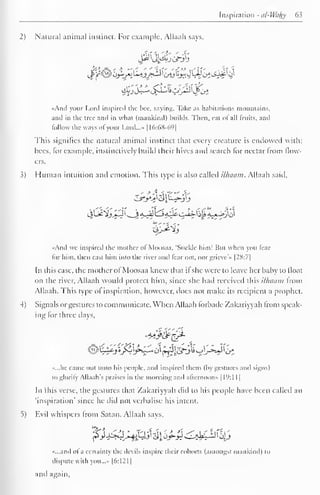 Inspiration - al-Wahy 63
2) Natural animal instinct. For example, Allaah says,
وَأَوْحَىٰ رَبُّكَ إِلَى
النَّحْلِ أَنِ اتَّخِذِي مِنَ الْجِبَالِ بُيُوتًا وَمِنَ الشَّجَرِ وَمِمَّا يَعْرِشُونَ ۝ ثُمَّ
كُلِي مِن كُلِّ الثَّمَرَاتِ فَاسْلُكِي سُبُلَ رَبِّكِ
«And your Lord inspired the bee, saying, 'Take as habitations mountains,
and in the tree and in what (mankind) builds. Then, eat of all fruits, and
follow the ways of your Lord...» [16:68-69]
This signifies the natural animal instinct that every creature is endowed with;
bees, for example, instinctively build their hives and search for nectar from flow-
ers.
3) Human intuition and emotion. This type is also called ilhaam. Allaah said,
وَأَوْحَيْنَا إِلَىٰ أُمِّ مُوسَىٰ
أَنْ أَرْضِعِيهِ فَإِذَا خِفْتِ عَلَيْهِ فَأَلْقِيهِ فِي الْيَمِّ وَلَا تَخَافِي
وَلَا تَحْزَنِي
«And we inspired the mother of Moosaa, 'Suckle him! But when you fear
for him, then cast him into the river and fear not, nor grieve'» [28:7]
In this case, the mother of Moosaa knew that if she were to leave her baby to float
on the river, Allaah would protect him, since she had received this ilhaam from
Allaah. This type of inspiration, however, does not make its recipient a prophet.
4) Signals or gestures to communicate. When Allaah forbade Zakariyyah from speak-
ing for three days,
فَخَرَجَ عَلَىٰ قَوْمِهِ
مِنَ الْمِحْرَابِ فَأَوْحَىٰ إِلَيْهِمْ أَن سَبِّحُوا بُكْرَةً وَعَشِيًّا ۝
«...he came out unto his people, and inspired them (by gestures and signs)
to glorify Allaah's praises in the morning and afternoon» [19:11]
In this verse, the gestures that Zakariyyah did to his people have been called an
'inspiration' since he did not verbalise his intent.
5) Evil whispers from Satan. Allaah says,
وَإِنَّ الشَّيَاطِينَ لَيُوحُونَ إِلَىٰ أَوْلِيَائِهِمْ لِيُجَادِلُوكُمْ
«...and of a certainty the devils inspire their cohorts (amongst mankind) to
dispute with you...» [6:121]
and again,